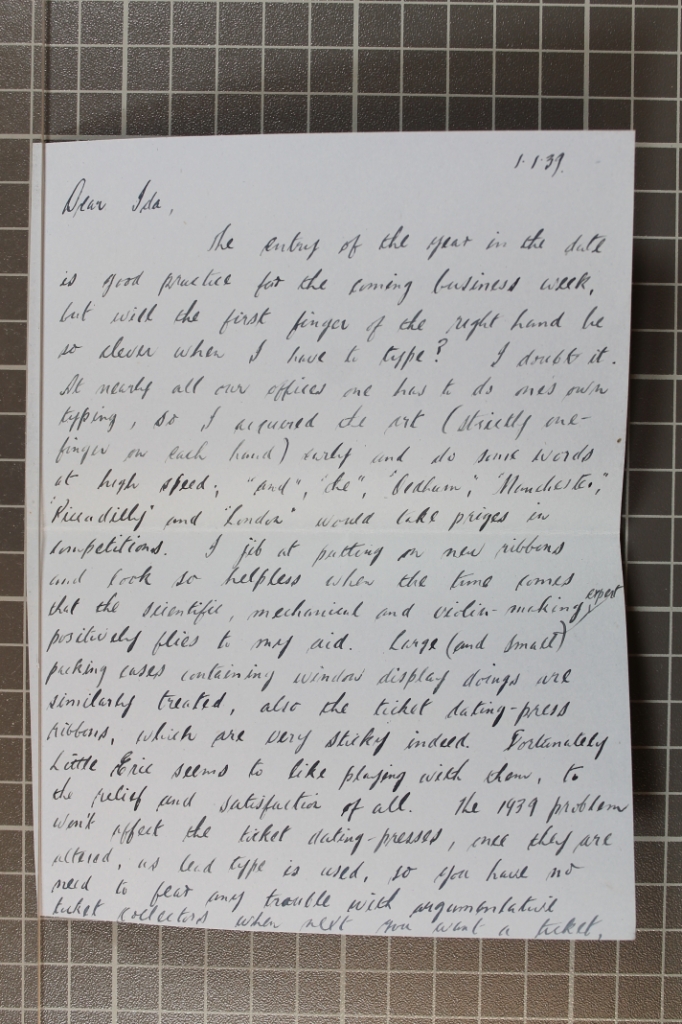 1.1.39.
Dear Ida,
The entry of the year in the date
is good practice for the coming business week,
but will the first finger of the right hand be
so clever when I have to type? I doubt it.
At nearly all our offices one has to do one's own
typing, so I acquired the art (strictly one-
finger on each hand) early and do some words
at high speed; "and", "the", "Oldham", "Manchester",
"Piccadilly" and "London" would take prizes in
competitions. I jib at putting on new ribbons
and look so helpless when the time comes
that the scientific, mechanical and violin-making expert
positively flies to my aid. Large (and small)
packing cases containing window display doings are
similarly treated, also the ticket dating-press
ribbons, which are very sticky indeed. Fortunately
Little Eric seems to like playing with them, to
the relief and satisfaction of all. The 1939 problem
won't affect the ticket dating-presses, once they are
altered, as lead type is used, so you have no
need to fear any trouble with argumentative
ticket collectors when next you want a ticket,